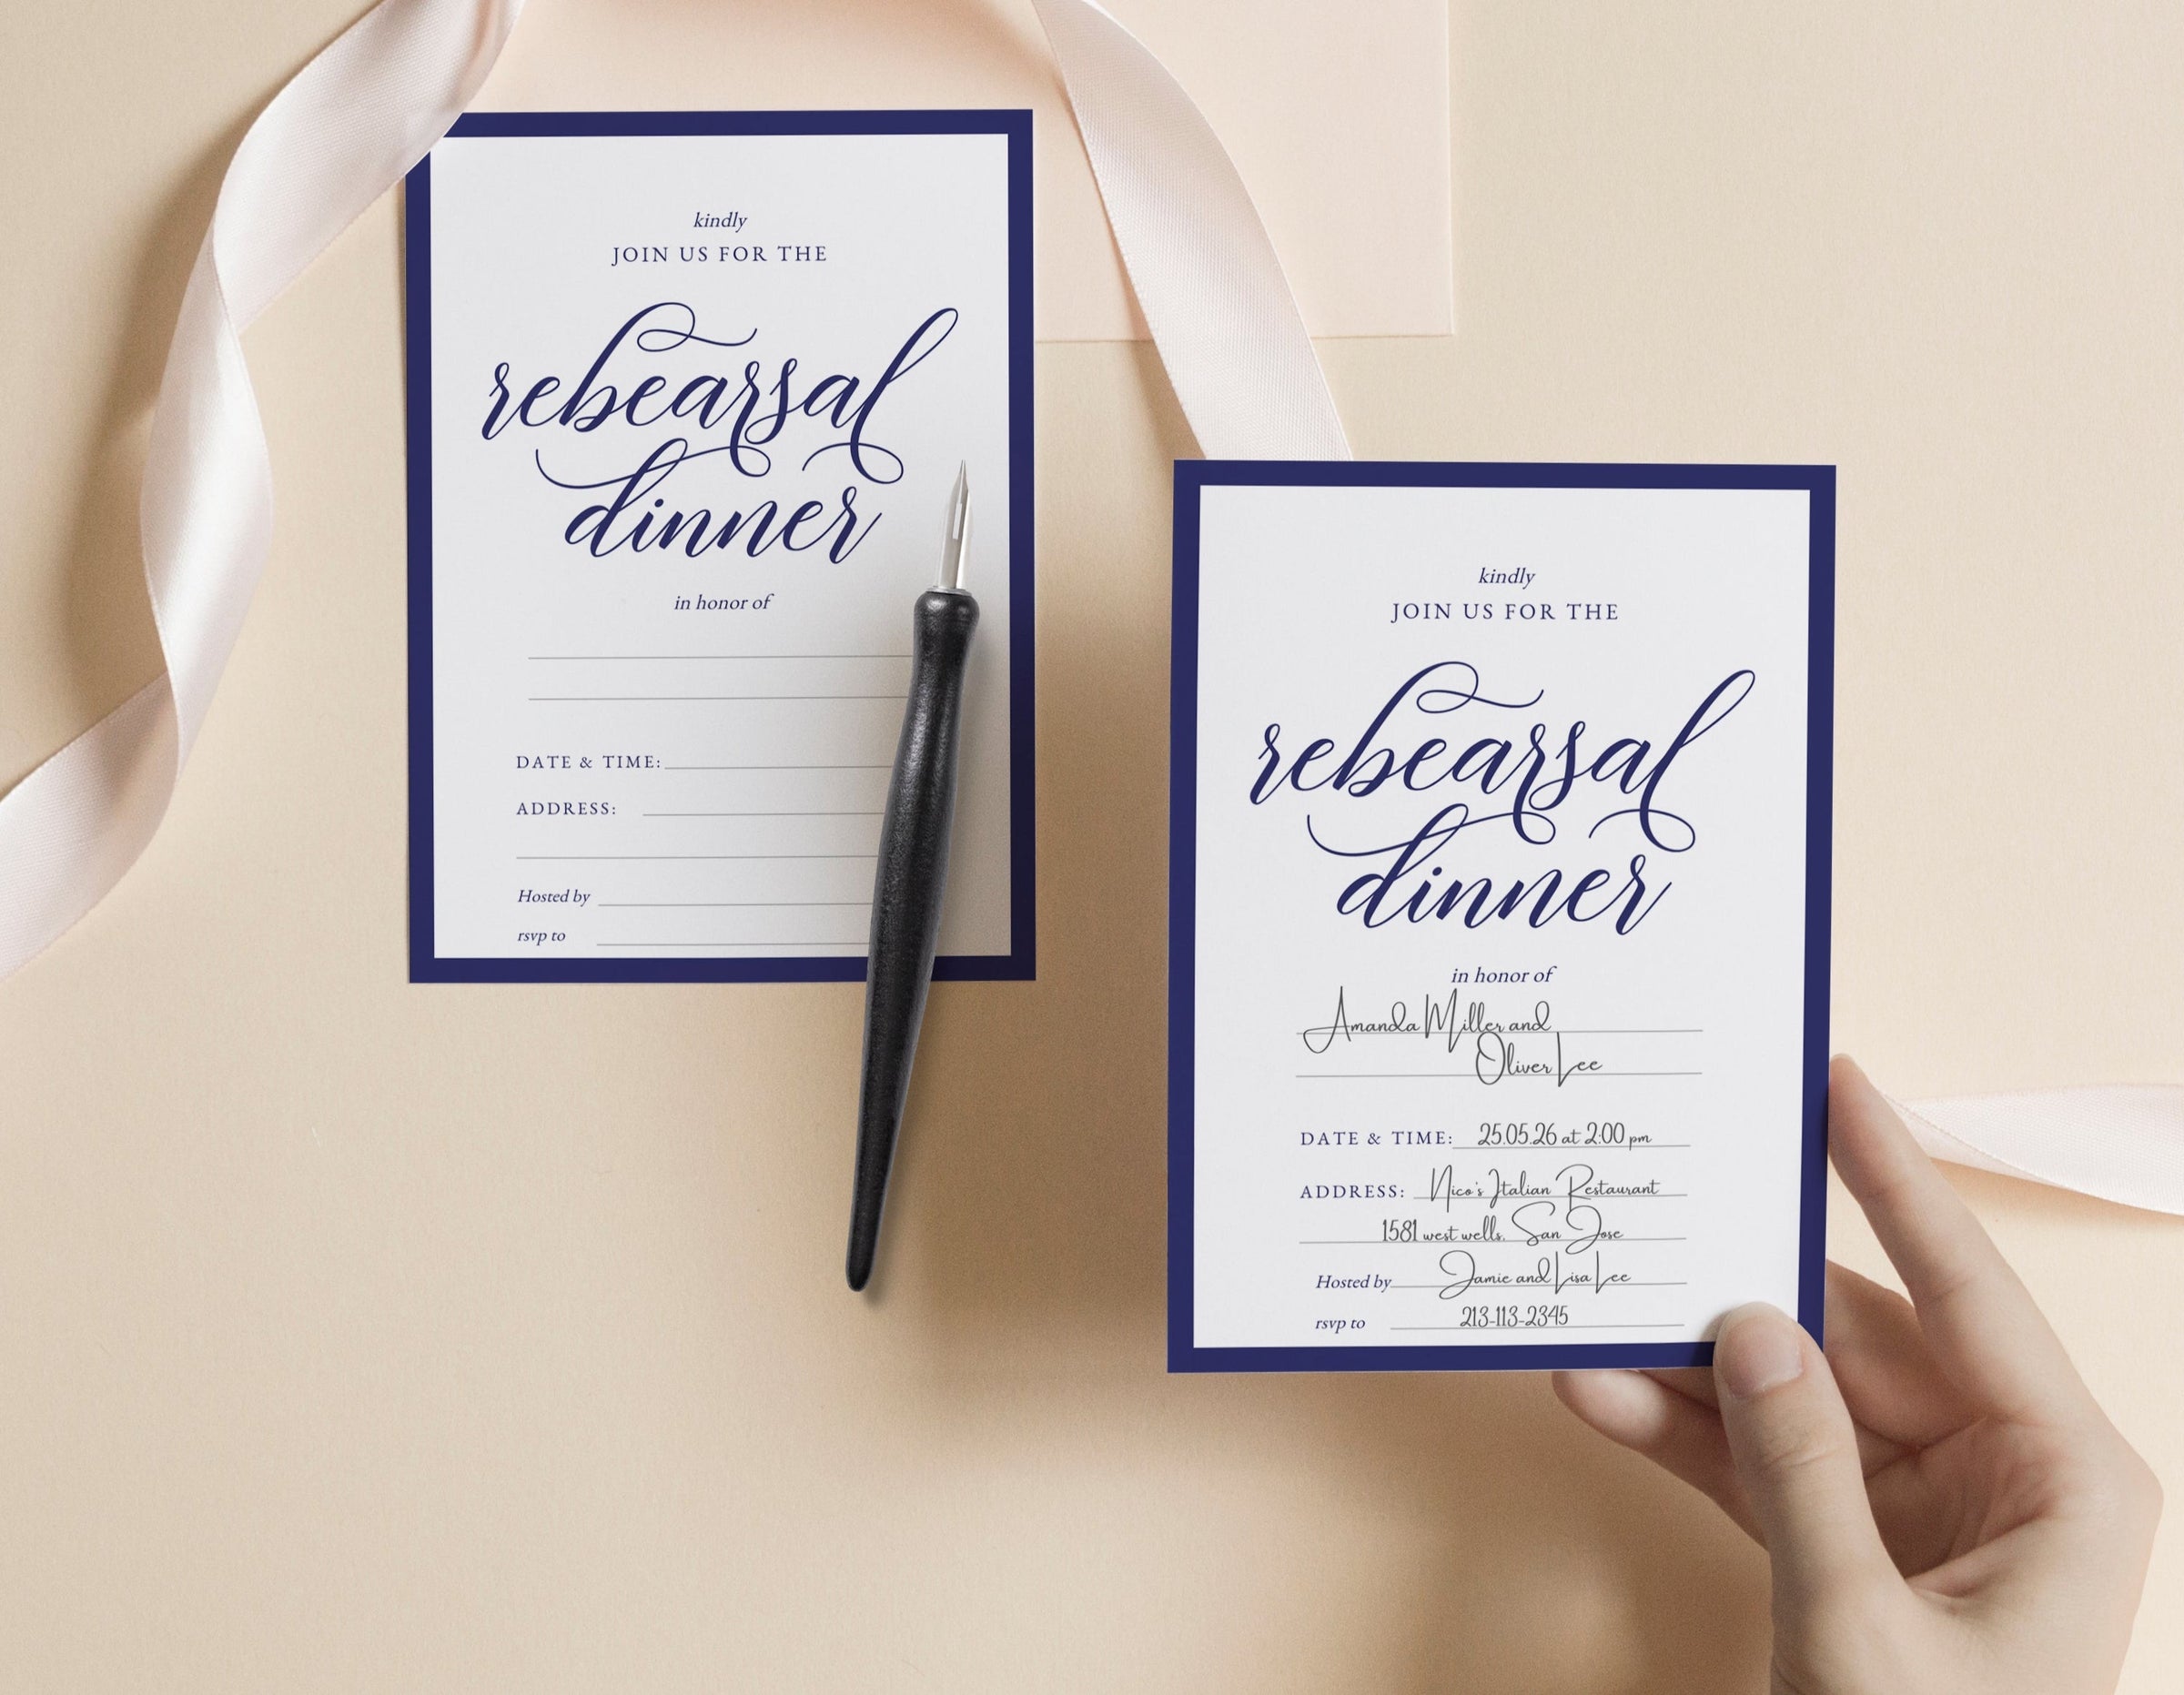 kindly
JOIN US FOR THE
rehearsal
dinner
in honor of
DATE & TIME:
ADDRESS:
Hosted by
rsvp to
kindly
JOIN US FOR THE
rehearsal
dinner
in honor of
Amanda Miller and
Oliver Lee
DATE & TIME: 25.05.26 at 2:00 pm
ADDRESS: Nico's Italian Restaurant
1581 west wells, San Jose
Hosted by Jamie and Lisa Lee
rsvp to 213-113-2345